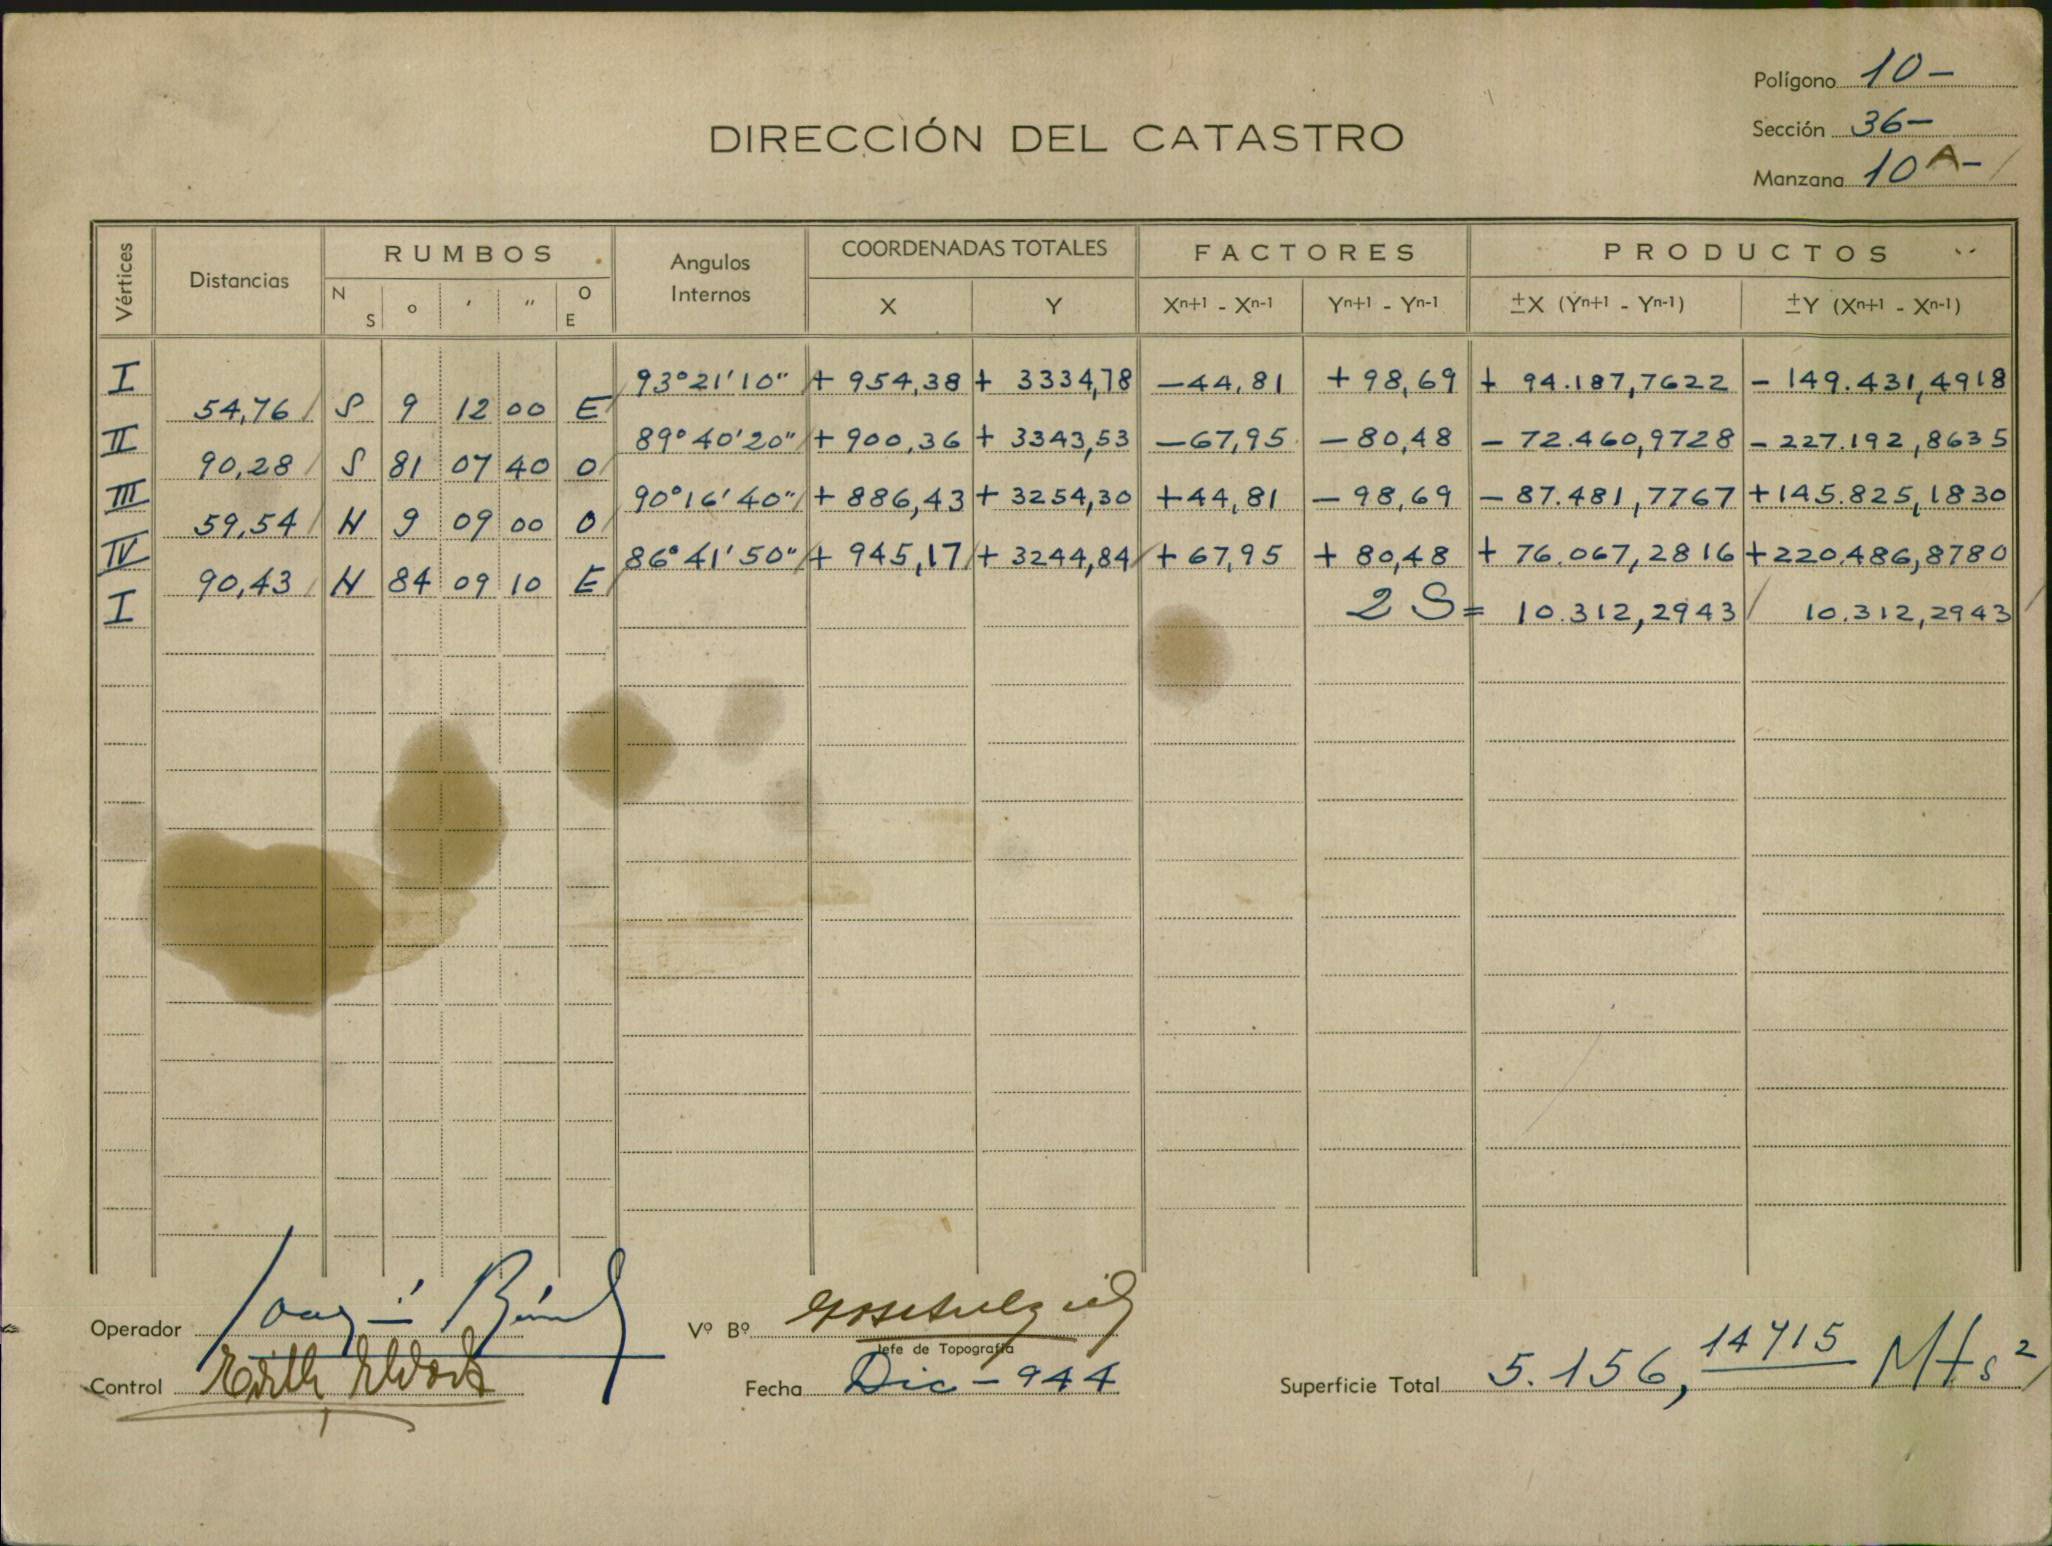 Polígono 10-
Sección 36-
Manzana 10 A-
DIRECCIÓN DEL CATASTRO
Vértices Distancias RUMBOS Angulos Internos COORDENADAS TOTALES FACTORES PRODUCTOS
N S o ′ ″ O E X Y Xn+1 - Xn-1 Yn+1 - Yn-1 ±X (Yn+1 - Yn-1) ±Y (Xn+1 - Xn-1)
I 93°21'10" + 954,38 + 3334,78 -44,81 +98,69 + 94.187,7622 - 149.431,4918
54,76 S 9 12 00 E
II 89°40'20" + 900,36 + 3343,53 -67,95 -80,48 - 72.460,9728 - 227.192,8635
90,28 S 81 07 40 O
III 90°16'40" + 886,43 + 3254,30 +44,81 -98,69 - 87.481,7767 +145.825,1830
59,54 N 9 09 00 O
IV 86°41'50" + 945,17 + 3244,84 +67,95 +80,48 + 76.067,2816 +220.486,8780
90,43 N 84 09 10 E
I 2 S= 10.312,2943 10.312,2943
Operador
Control
Vº Bº
Jefe de Topografía
Fecha Dic - 944
Superficie Total 5.156,14715 Mts2